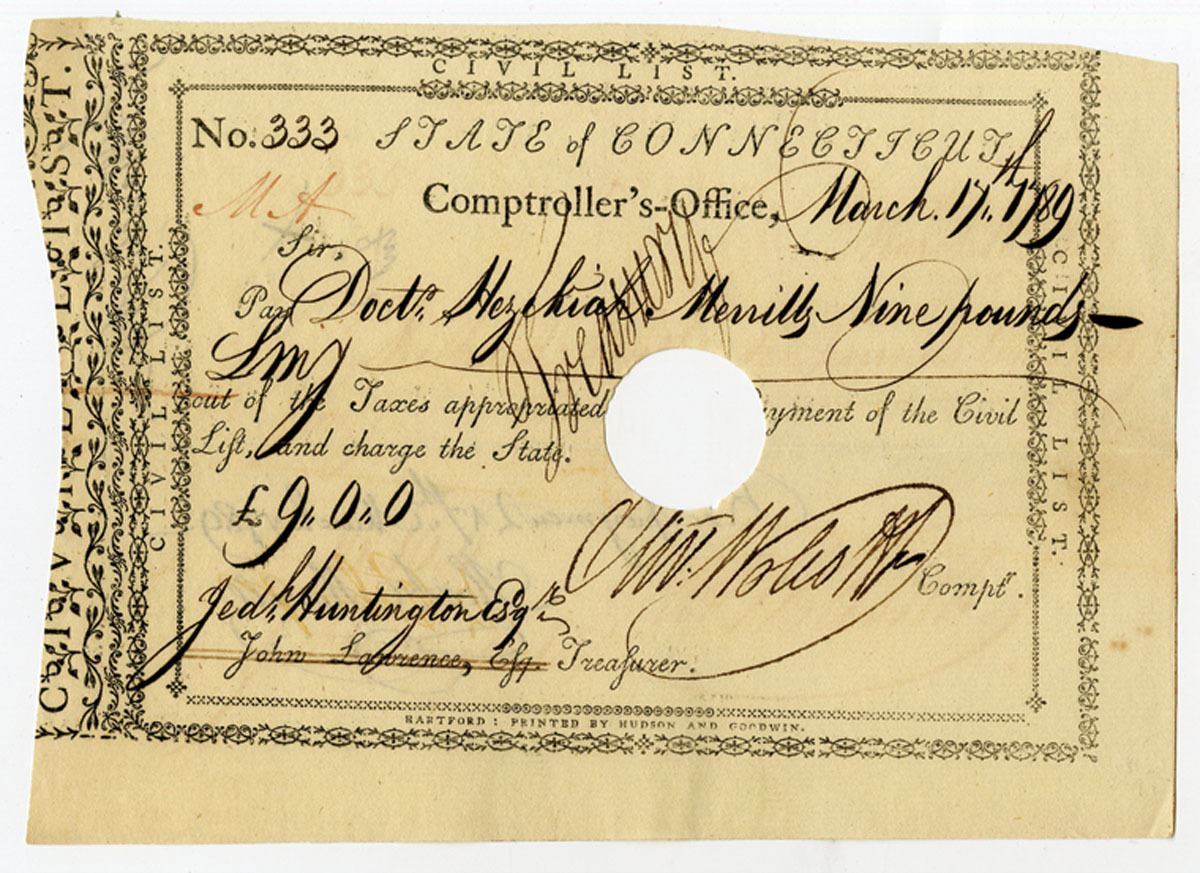 CIVIL LIST.
No. 333 STATE of CONNECTICUT,
M A
Comptroller's-Office, March. 17th 1789
Sir,
Pay Doctr. Hezekiah Merrills Nine pounds
Lmy
out of the Taxes appropriated yment of the Civil
Liſt, and charge the State.
Treasury
£ 9,, 0,, 0
Olivr. Wolcott Jr Comptr.
Jedh. Huntington Esqr
John Lawrence, Eſq. Treaſurer.
HARTFORD: PRINTED BY HUDSON AND GOODWIN.
CIVIL LIST.
CIVIL LIST.